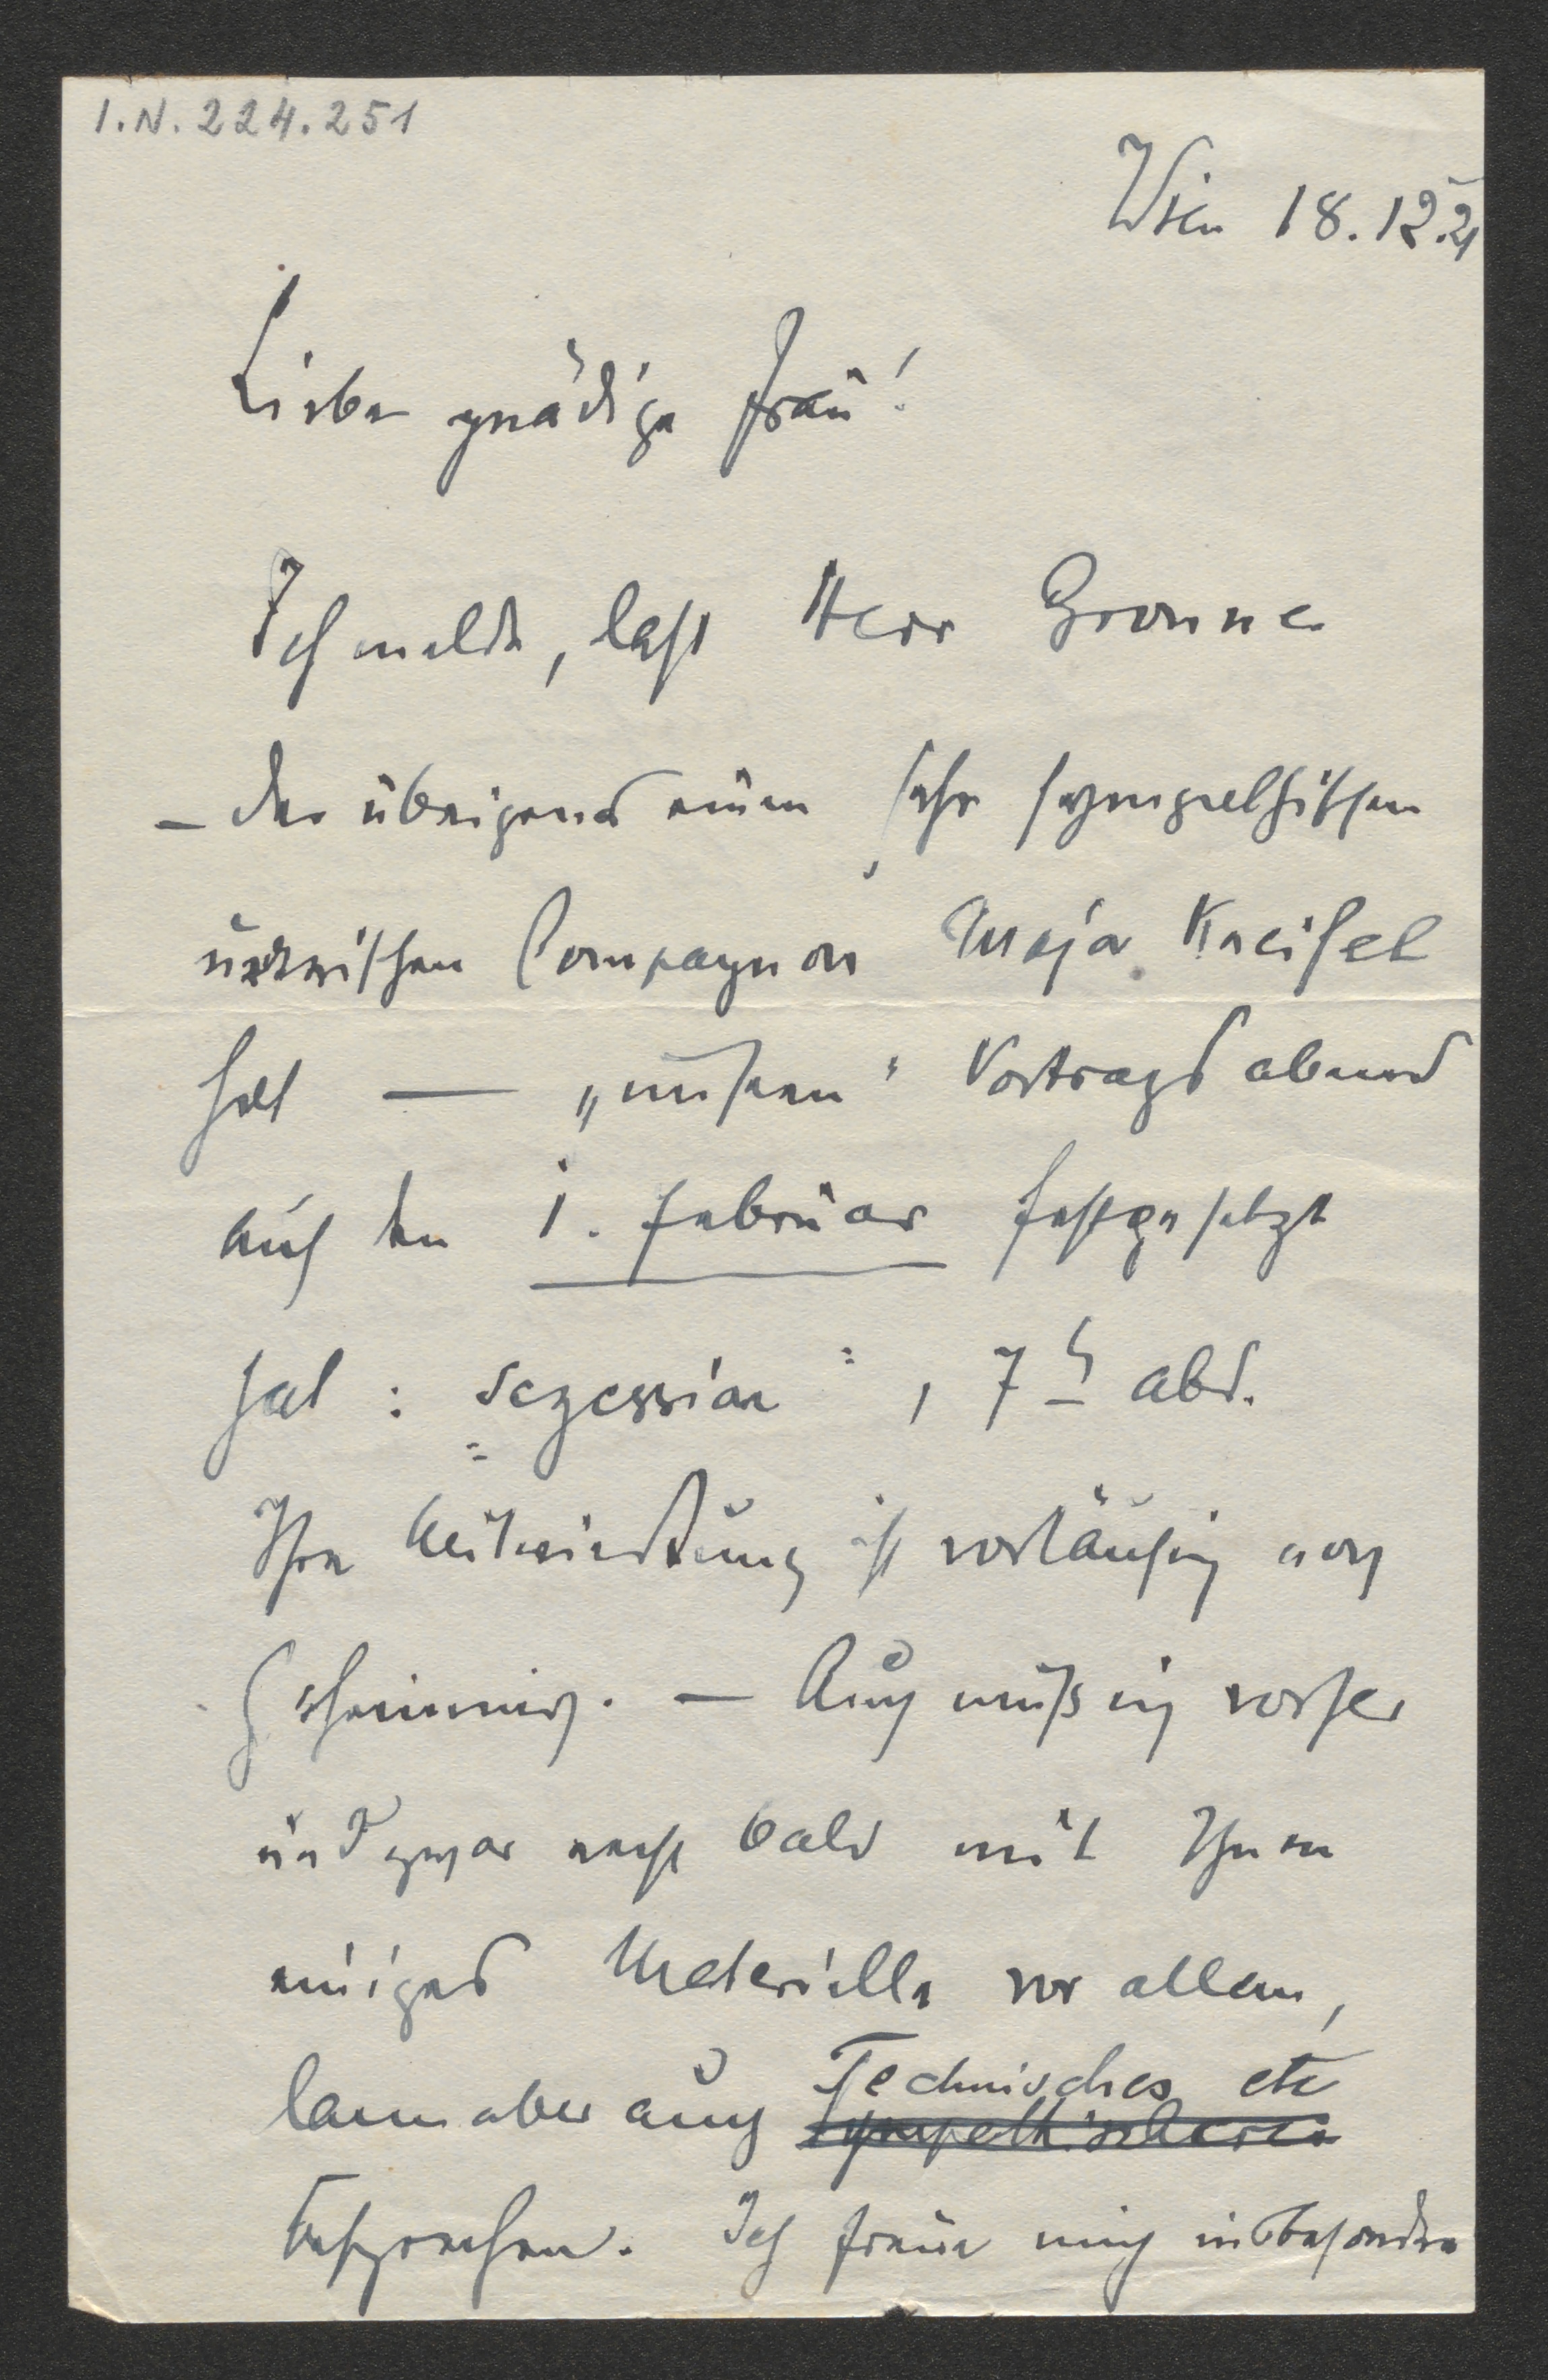 I.N. 224.251
Wien 18.12.21
Liebe gnädige Frau!
Ich melde, daß Herr Gronner
– der übrigens einen sehr sympathischen
Compagnon Major Kneisel
hat — „unseren“ Vortragsabend
auf den 1. Februar festgesetzt
hat: „Sezession“, 7h abd.
Ihre Mitwirkung ist vorläufig noch
Geheimnis. — Auch muß ich vorher
und zwar recht bald mit Ihnen
einiges Materielle vor allem,
dann aber auch Technisches etc
besprechen. Ich freue mich insbesondre